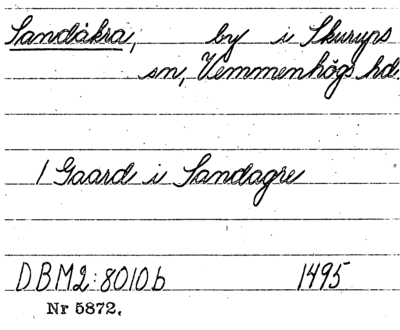 Sandåkra, by i Skurups
sn, Vemmenhögs hd.
1 Gaard i Sandagre
DBM2:8010b 1495
Nr 5872.